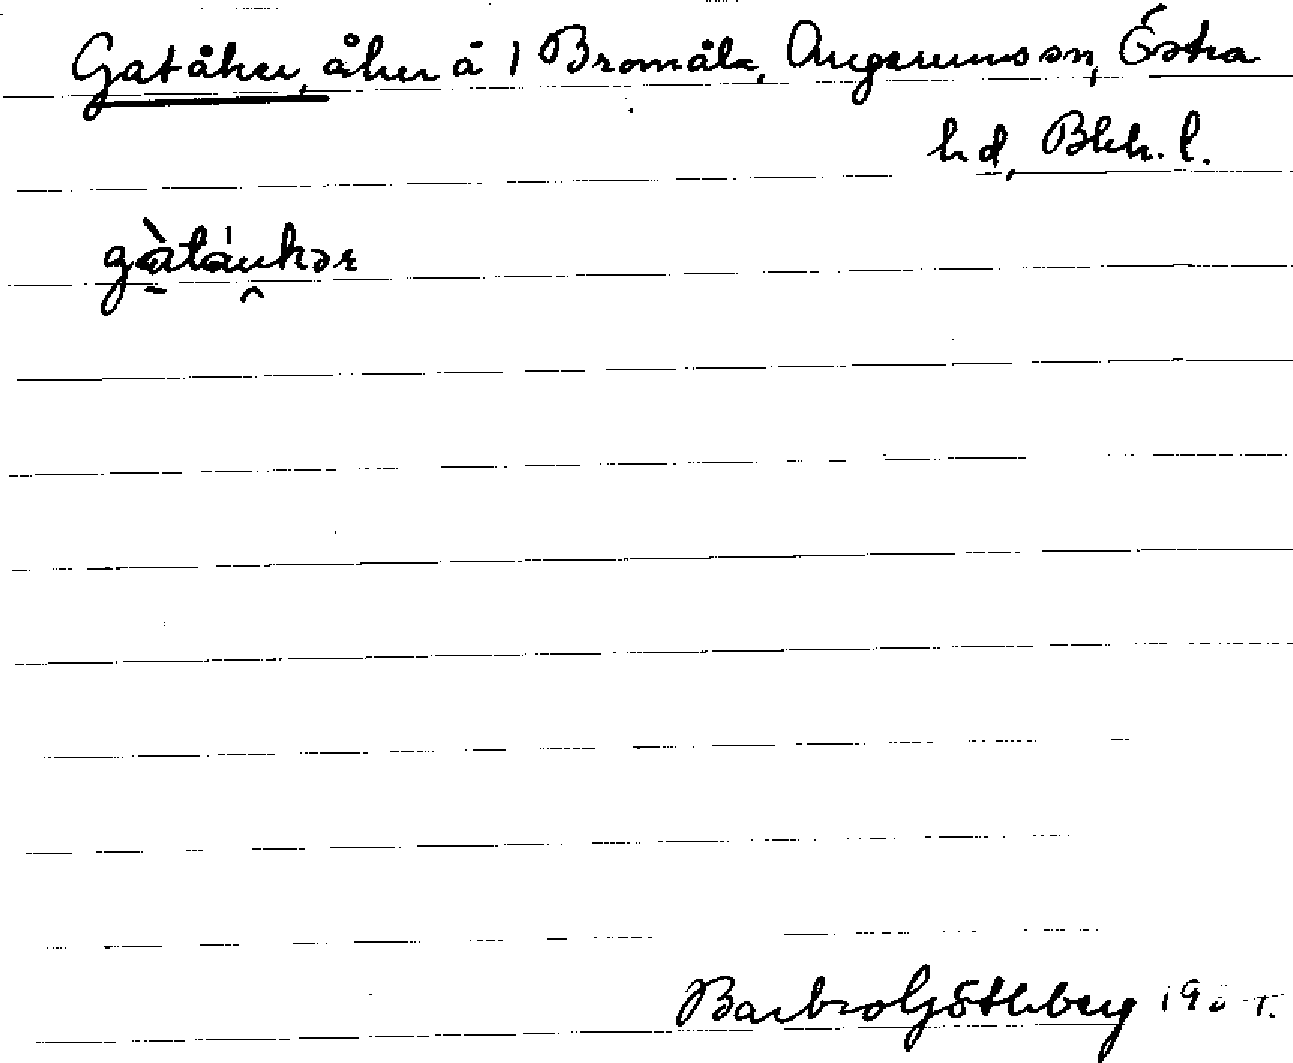 Gatåker, åker å 1 Bromåla, Augerums sn, Östra
hd, Blek. l.
gàtáukər
Barbro Göthberg